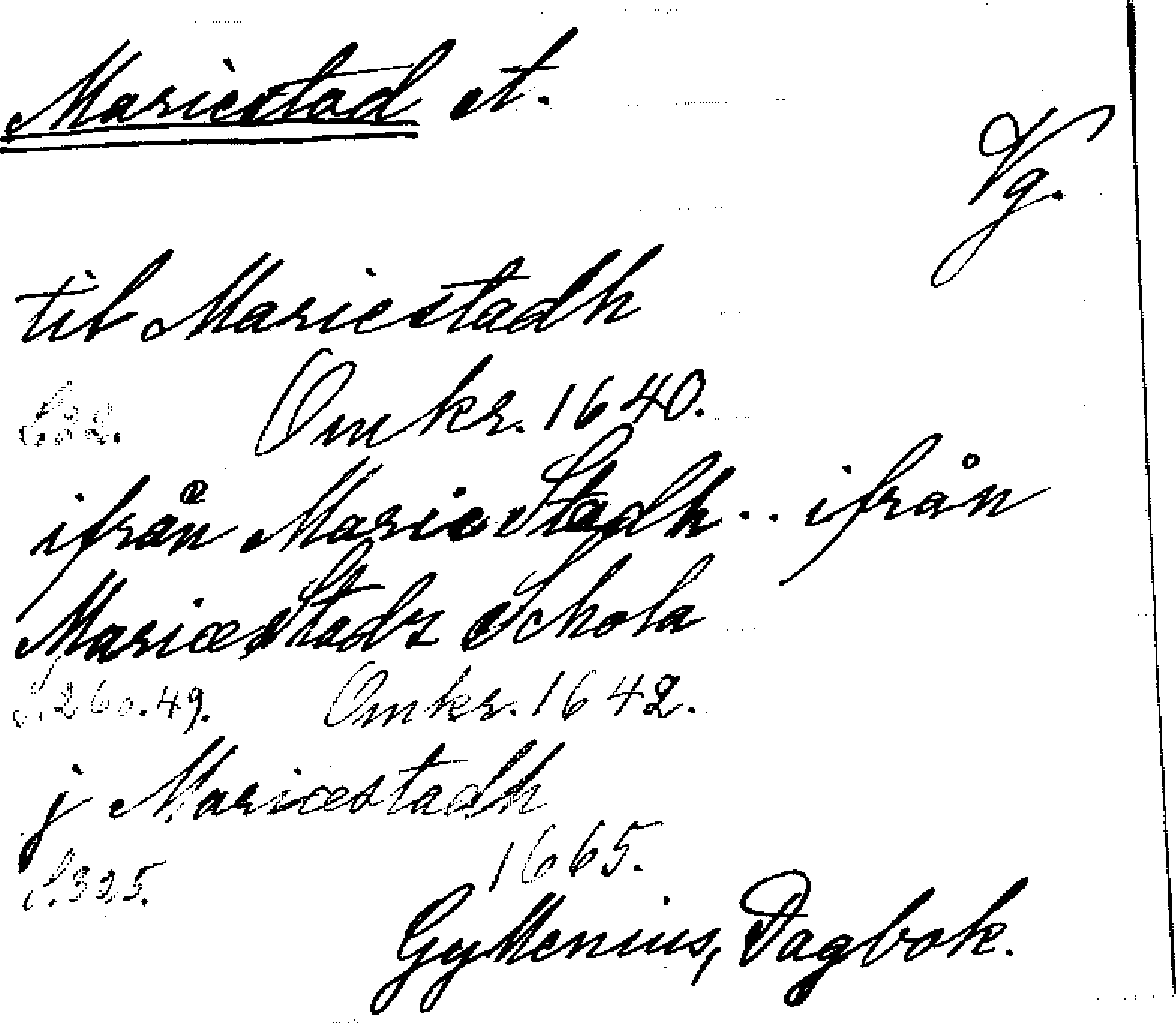 Mariestad st.
Vg.
til Mariestadh
Omkr. 1640.
ifrån MarieStadh .. ifrån
MariæStadz Schola
S. 260. 49. Omkr. 1642.
j Mariæstadh
S. 325. 1665.
Gyllenius, Dagbok.